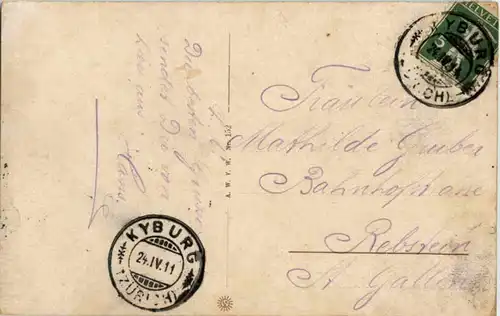 L. M.
Die besten Grüsse
sendet Dir von
hier aus
Hans.
Fräulein
Mathilde Gruber
Bahnhofstrasse
Rebstein
St. Gallen
KYBURG
24.IV.11
(ZÜRICH)
KYBURG
(ZÜRICH)
HELVETIA
5
A. W. Y. W. No. 152